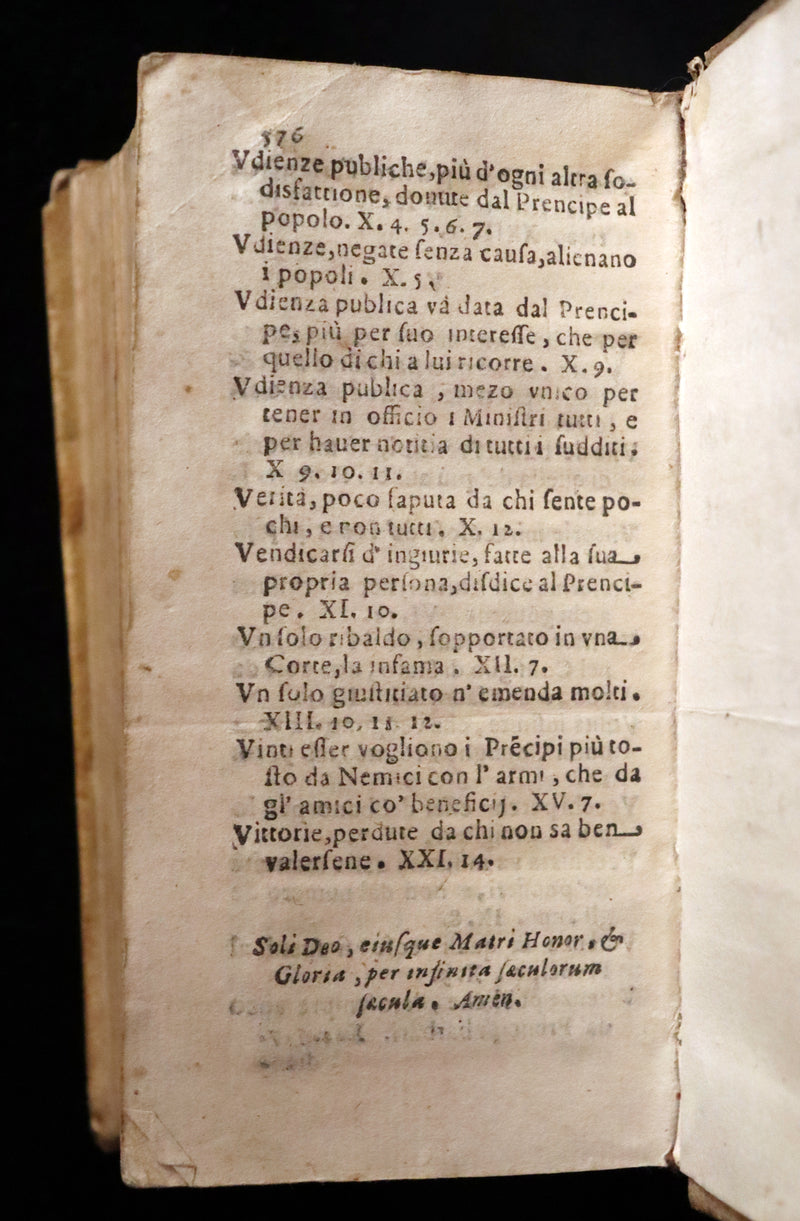 576
Vdienze publiche, più d'ogni altra ſo-
disfattione, douute dal Prencipe al
popolo. X. 4. 5. 6. 7.
Vdienze, negate ſenza cauſa, alienano
i popoli. X. 5.
Vdienza publica và data dal Prenci-
pe, più per ſuo intereſſe, che per
quello di chi a lui ricorre. X. 9.
Vdienza publica, mezo vnico per
tener in officio i Miniſtri tutti, e
per hauer notitia di tutti i ſudditi.
X 9. 10. 11.
Verità, poco ſaputa da chi ſente po-
chi, e non tutti. X. 12.
Vendicarſi d' ingiurie, fatte alla ſua
propria perſona, diſdice al Prenci-
pe. XI. 10.
Vn ſolo ribaldo, ſopportato in vna
Corte, la infama. XII. 7.
Vn ſolo giuſtitiato n' emenda molti.
XIII. 10. 11. 12.
Vinti eſſer vogliono i Prẽcipi più to-
ſto da Nemici con l' armi, che da
gl' amici co' beneficij. XV. 7.
Vittorie, perdute da chi non sa ben
valerſene. XXI. 14.
Soli Deo, eiuſque Matri Honor, &
Gloria, per infinita ſæculorum
ſæcula. Amèn.